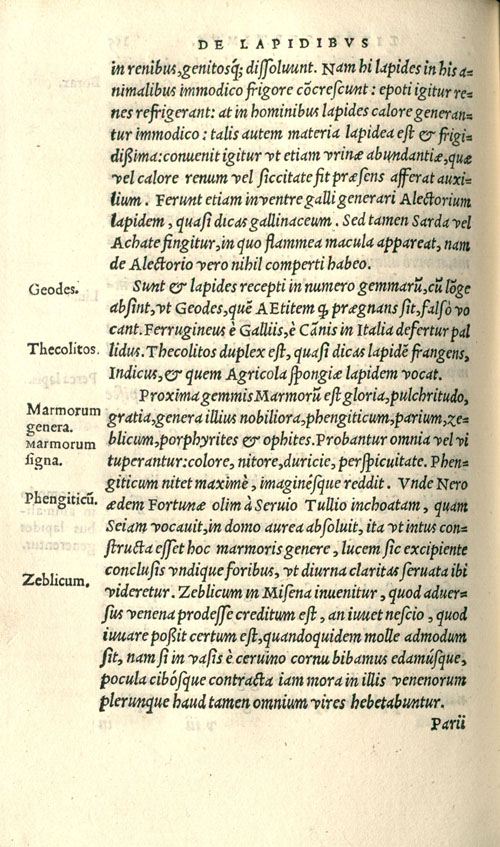 DE LAPIDIBVS
in renibus, genitosq́; dissoluunt. Nam hi lapides in his a=
nimalibus immodico frigore cõcrescunt : epoti igitur re=
nes refrigerant: at in hominibus lapides calore generan=
tur immodico : talis autem materia lapidea est & frigi=
dißima: conuenit igitur vt etiam vrinæ abundantiæ, quæ
vel calore renum vel siccitate fit præsens afferat auxi=
lium . Ferunt etiam in ventre galli generari Alectorium
lapidem , quasi dicas gallinaceum . Sed tamen Sarda vel
Achate fingitur, in quo flammea macula appareat, nam
de Alectorio vero nihil comperti habeo.
Geodes.
Sunt & lapides recepti in numero gemmarũ, cũ lõge
absint, vt Geodes, quẽ AEtitem q̃ prægnans sit, falsò vo
cant. Ferrugineus è Galliis, è Cãnis in Italia defertur pal
Thecolitos.
lidus. Thecolitos duplex est, quasi dicas lapidẽ frangens,
Indicus, & quem Agricola spongiæ lapidem vocat.
Proxima gemmis Marmorũ est gloria, pulchritudo,
Marmorum
genera.
gratia, genera illius nobiliora, phengiticum, parium, ze=
blicum, porphyrites & ophites. Probantur omnia vel vi
Marmorum
signa.
tuperantur: colore, nitore, duricie, perspicuitate. Phen=
giticum nitet maximè , imaginésque reddit . Vnde Nero
Phengiticũ.
ædem Fortunæ olim à Seruio Tullio inchoatam , quam
Seiam vocauit, in domo aurea absoluit, ita vt intus con=
structa esset hoc marmoris genere , lucem sic excipiente
conclusis vndique foribus, vt diurna claritas seruata ibi
Zeblicum.
videretur. Zeblicum in Misena inuenitur , quod aduer=
sus venena prodesse creditum est , an iuuet nescio , quod
iuuare poßit certum est, quandoquidem molle admodum
sit, nam si in vasis è ceruino cornu bibamus edamúsque,
pocula cibósque contracta iam mora in illis venenorum
plerunque haud tamen omnium vires hebetabuntur.
Parii